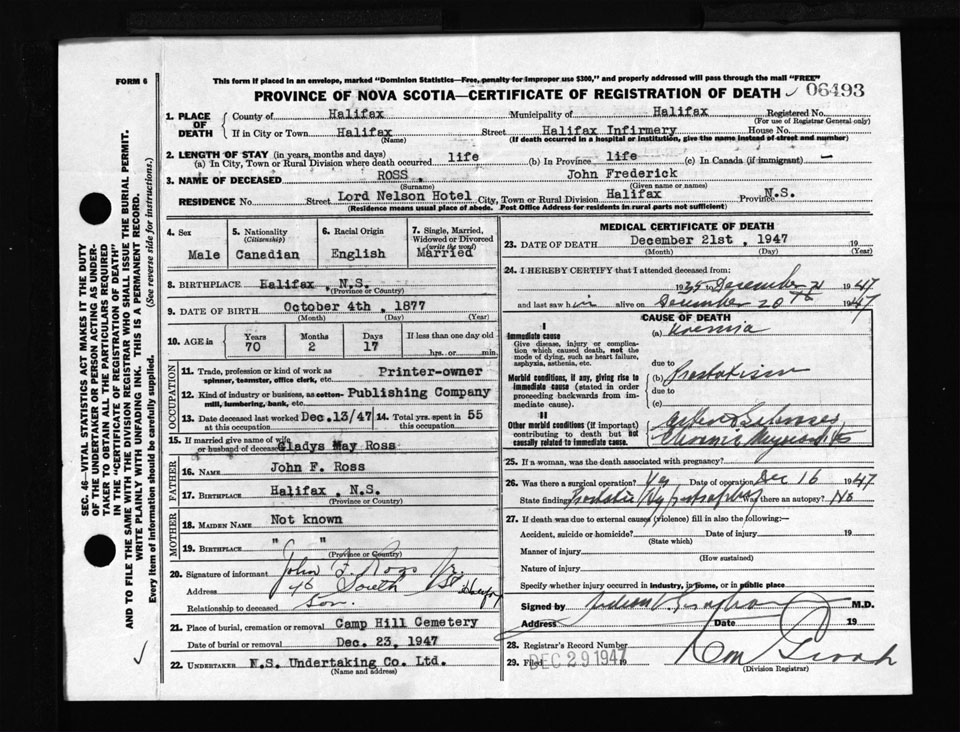 FORM 6
This form if placed in an envelope, marked "Dominion Statistics—Free, penalty for improper use $300," and properly addressed will pass through the mail "FREE"
PROVINCE OF NOVA SCOTIA—CERTIFICATE OF REGISTRATION OF DEATH 06493
1. PLACE OF DEATH County of Halifax Municipality of Halifax Registered No.
(For use of Registrar General only)
If in City or Town Halifax Street Halifax Infirmery House No.
(Name) (If death occurred in a hospital or institution, give the name instead of street and number)
2. LENGTH OF STAY (in years, months and days)
(a) In City, Town or Rural Division where death occurred life (b) In Province life (c) In Canada (if immigrant) —
3. NAME OF DECEASED ROSS John Frederick
(Surname) (Given name or names)
RESIDENCE No. Street Lord Nelson Hotel City, Town or Rural Division Halifax Province N.S.
(Residence means usual place of abode. Post Office Address for residents in rural parts not sufficient)
4. Sex Male
5. Nationality (Citizenship) Canadian
6. Racial Origin English
7. Single, Married, Widowed or Divorced (write the word) Married
8. BIRTHPLACE Halifax N.S.
(Province or Country)
9. DATE OF BIRTH October 4th 1877
(Month) (Day) (Year)
10. AGE in Years Months Days If less than one day old
70 2 17 hrs. or min.
OCCUPATION
11. Trade, profession or kind of work as spinner, teamster, office clerk, etc. Printer-owner
12. Kind of industry or business, as cotton-mill, lumbering, bank, etc. Publishing Company
13. Date deceased last worked at this occupation Dec.13/47 14. Total yrs. spent in this occupation 55
15. If married give name of wife or husband of deceased Gladys May Ross
FATHER
16. NAME John F. Ross
17. BIRTHPLACE Halifax, N.S.
(Province or Country)
MOTHER
18. MAIDEN NAME Not known
19. BIRTHPLACE " "
(Province or Country)
20. Signature of informant John F. Ross Jr.
Address 46 South St Halifax
Relationship to deceased Son.
21. Place of burial, cremation or removal Camp Hill Cemetery
Date of burial or removal Dec. 23, 1947
22. UNDERTAKER N.S. Undertaking Co. Ltd.
(Name and address)
MEDICAL CERTIFICATE OF DEATH
23. DATE OF DEATH December 21st, 1947 19
(Month) (Day) (Year)
24. I HEREBY CERTIFY that I attended deceased from:
19 to December 21 1947
and last saw him alive on December 20th 1947
CAUSE OF DEATH
I
Immediate cause
Give disease, injury or complication which caused death, not the mode of dying, such as heart failure, asphyxia, asthenia, etc.
(a) Uremia
due to
Morbid conditions, if any, giving rise to immediate cause (stated in order proceeding backwards from immediate cause).
(b) Prostatism
due to
(c)
II
Other morbid conditions (if important) contributing to death but not causally related to immediate cause.
Chronic
25. If a woman, was the death associated with pregnancy?
26. Was there a surgical operation? Yes Date of operation Dec 16 1947
State findings Prostatic Hypertrophy Was there an autopsy? No
27. If death was due to external causes (violence) fill in also the following:—
Accident, suicide or homicide? Date of injury 19
(State which)
Manner of injury
(How sustained)
Nature of injury
Specify whether injury occurred in industry, in home, or in public place
Signed by M.D.
Address Date 19
28. Registrar's Record Number
29. Filed DEC 29 1947 19
(Division Registrar)
SEC. 46—VITAL STATISTICS ACT MAKES IT THE DUTY
OF THE UNDERTAKER OR PERSON ACTING AS UNDER-
TAKER TO OBTAIN ALL THE PARTICULARS REQUIRED
IN THE "CERTIFICATE OF REGISTRATION OF DEATH"
AND TO FILE THE SAME WITH THE DIVISION REGISTRAR WHO SHALL ISSUE THE BURIAL PERMIT.
WRITE PLAINLY WITH UNFADING INK. THIS IS A PERMANENT RECORD.
Every item of information should be carefully supplied. (See reverse side for instructions.)